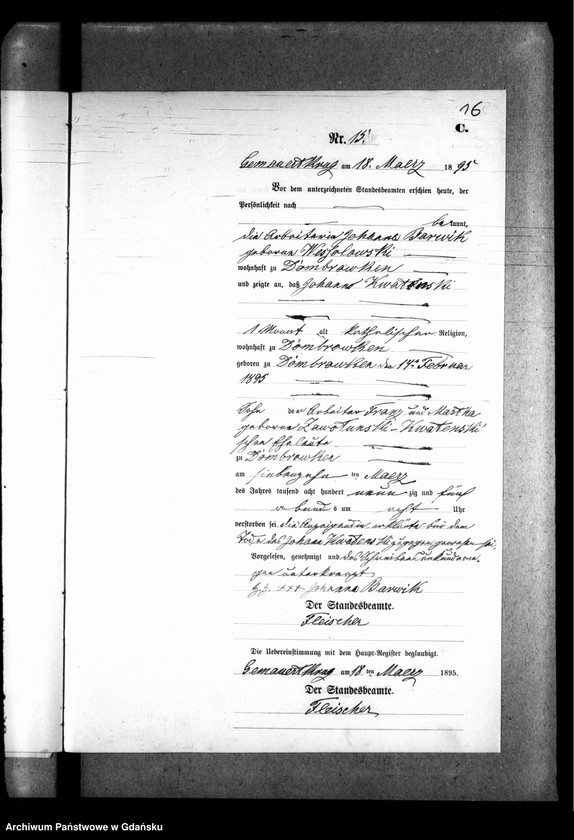 16
C.
Nr. 15.
Gemauert Krug am 18. Maerz 1895
Vor dem unterzeichneten Standesbeamten erschien heute, der
Persönlichkeit nach
bekannt,
die Arbeiterin Johanna Barwik
geborene
wohnhaft zu Dombrowken
und zeigte an, daß Johann Kwatenski
1 Monat alt katholischer Religion,
wohnhaft zu Dombrowken
geboren zu Dombrowken den 14. Februar
1895
Sohn der Arbeiter Franz und Martha
geborene Kwatenski
schen Eheleute
zu Dombrowken
am siebenzehn ten Maerz
des Jahres tausend acht hundert neunzig und fünf
abends um acht Uhr
verstorben sei, die Anzeigende erklärte bei dem
Tode des Johann Kwatenski zugegen gewesen sei.
Vorgelesen, genehmigt und
unterkreuzt
+++ Johanna Barwik
Der Standesbeamte.
Fleischer
Die Uebereinstimmung mit dem Haupt-Register beglaubigt.
Gemauert Krug am 18 ten Maerz 1895.
Der Standesbeamte.
Fleischer
Archiwum Państwowe w Gdańsku